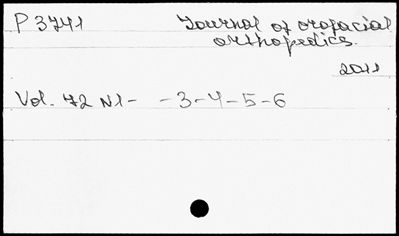 P 3741 Journal of orofacial
orthopedics.
2011
Vol. 72 N1- -3-4-5-6